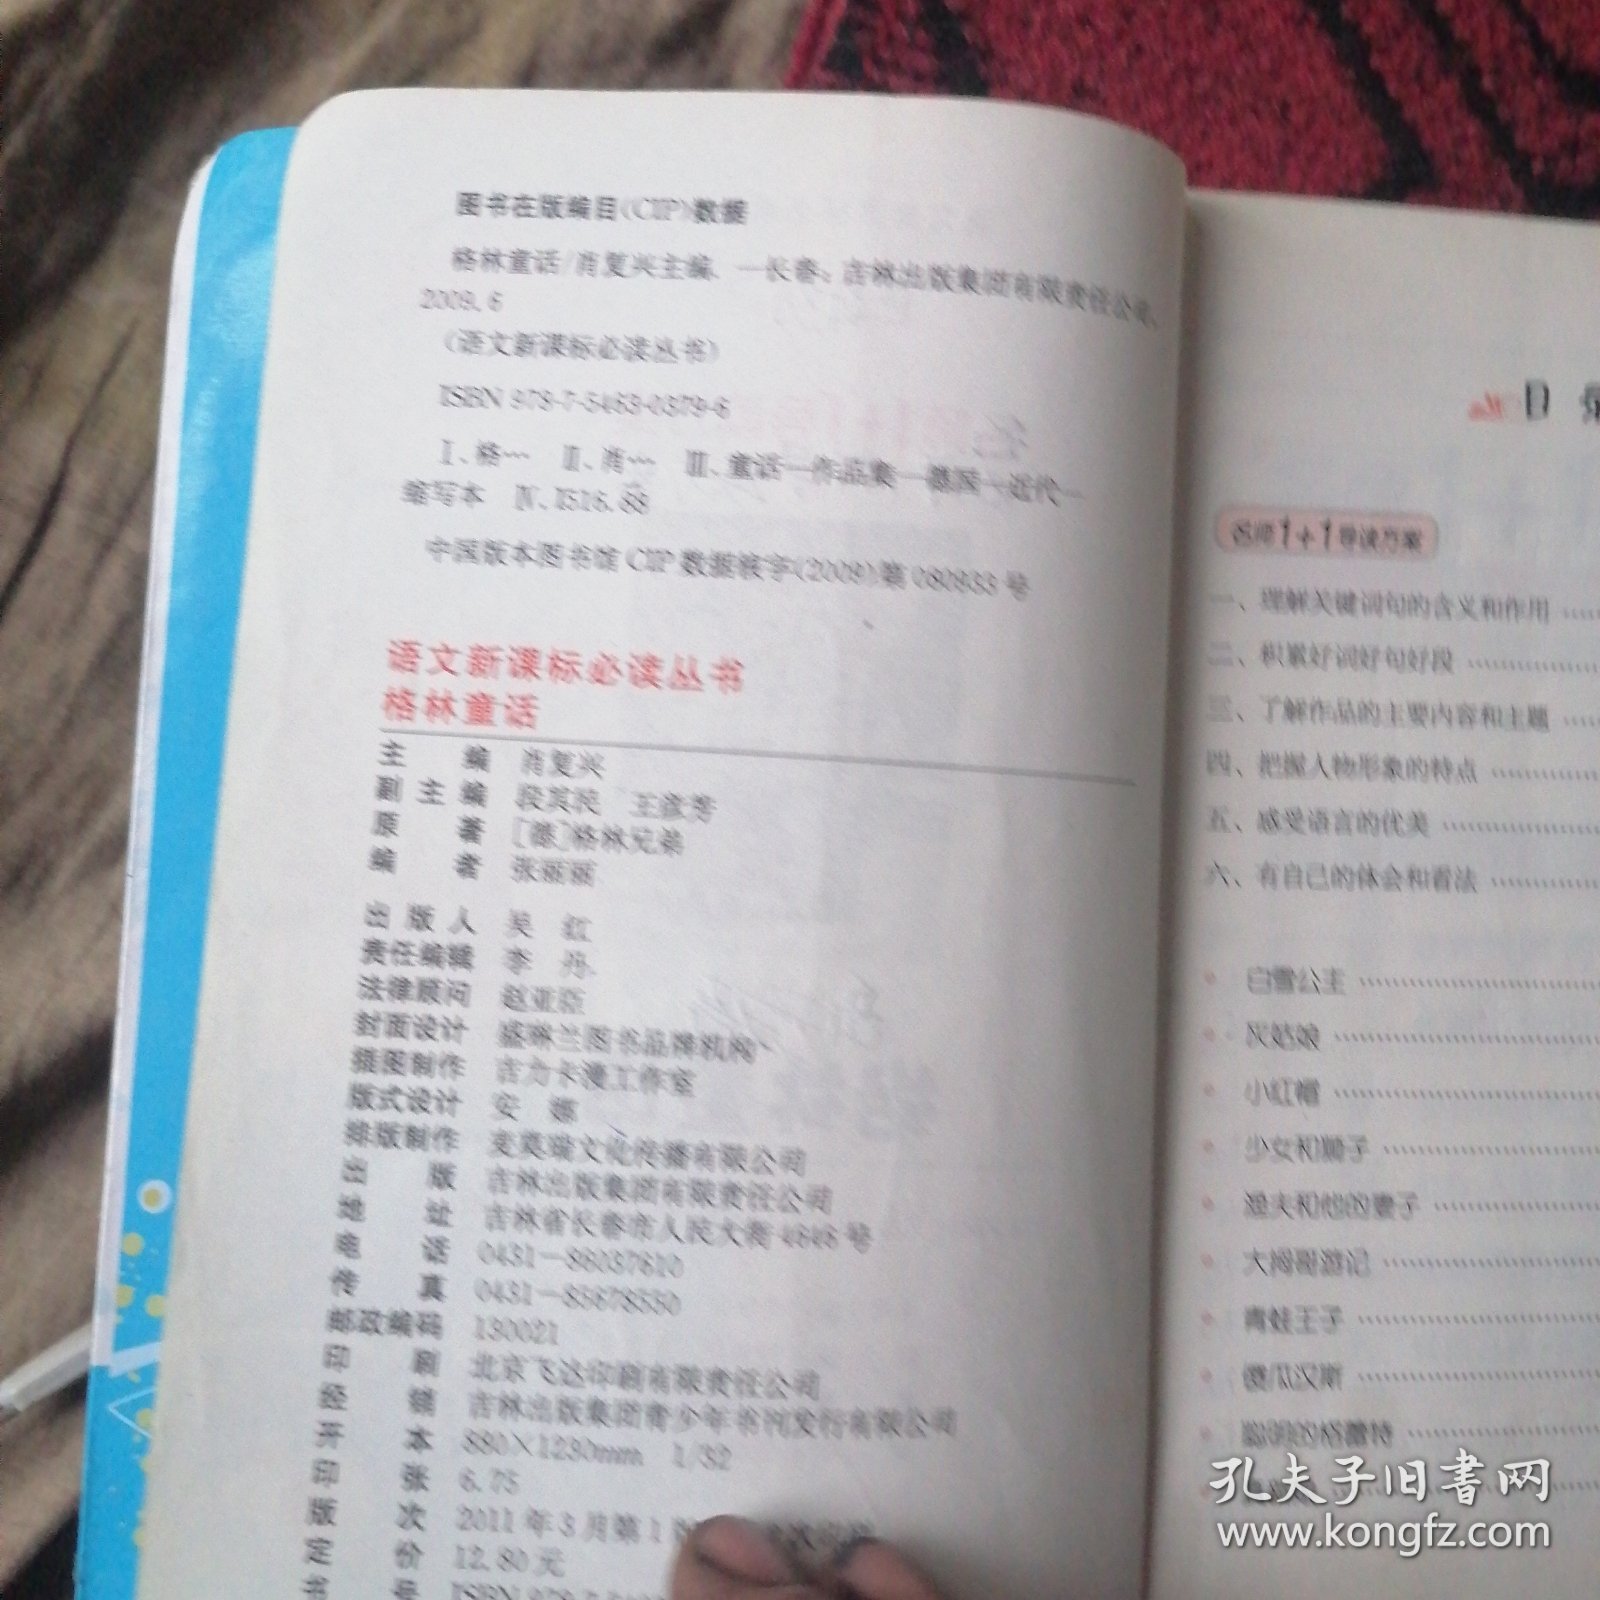 图书在版编目(CIP)数据
格林童话/肖复兴主编. —长春：吉林出版集团有限责任公司，
2009.6
(语文新课标必读丛书)
ISBN 978-7-5463-0379-6
Ⅰ、格… Ⅱ、肖… Ⅲ、童话—作品集—德国—近代—
缩写本 Ⅳ、I516.88
中国版本图书馆CIP数据核字(2009)第080833号
语文新课标必读丛书
格林童话
主编 肖复兴
副主编 段其民 王彦芳
原著 [德]格林兄弟
编者 张丽丽
出版人 吴红
责任编辑 李丹
法律顾问 赵亚臣
封面设计 盛琳兰图书品牌机构
插图制作 吉力卡漫工作室
版式设计 安娜
排版制作 麦莫瑞文化传播有限公司
出版 吉林出版集团有限责任公司
地址 吉林省长春市人民大街4646号
电话 0431—86037610
传真 0431—85678550
邮政编码 130021
印刷 北京飞达印刷有限责任公司
经销 吉林出版集团青少年书刊发行有限公司
开本 880×1230mm 1/32
印张 6.75
版次 2011年3月第1
定价 12.80元
书号 ISBN 978-7-5
目
名师1+1导读方案
一、理解关键词句的含义和作用
二、积累好词好句好段
三、了解作品的主要内容和主题
四、把握人物形象的特点
五、感受语言的优美
六、有自己的体会和看法
白雪公主
灰姑娘
小红帽
少女和狮子
渔夫和他的妻子
大拇哥游记
青蛙王子
傻瓜汉斯
聪明的格蕾特
孔夫子旧书网
www.kongfz.com